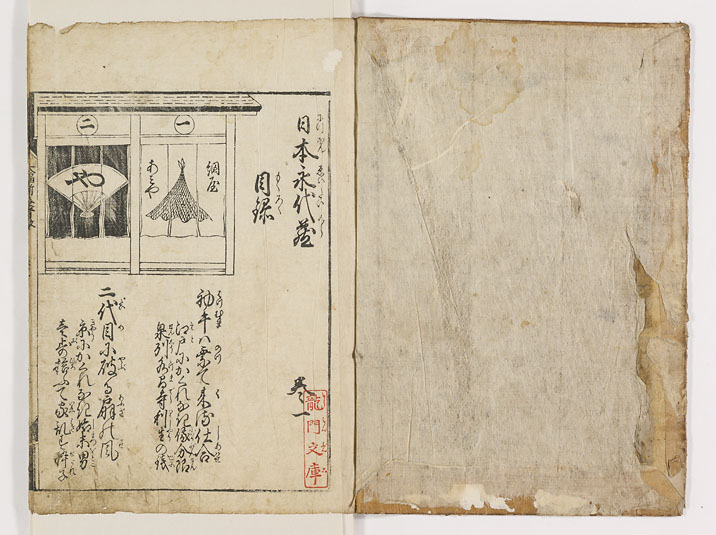 日本永代蔵
目録
巻一
一
網屋
あみや
二
や
初午ハ乗て来る仕合
江戸にかくれなき俄分限
泉州水間寺利生の銭
二代目に破る扇の風
京にかくれなき始末男
壱歩拾ふて家乱す忰子
龍門文庫